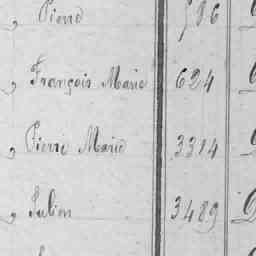 , Pierre 596
, François Marie 624
, Pierre Marie 3314
, Julien 3489 D